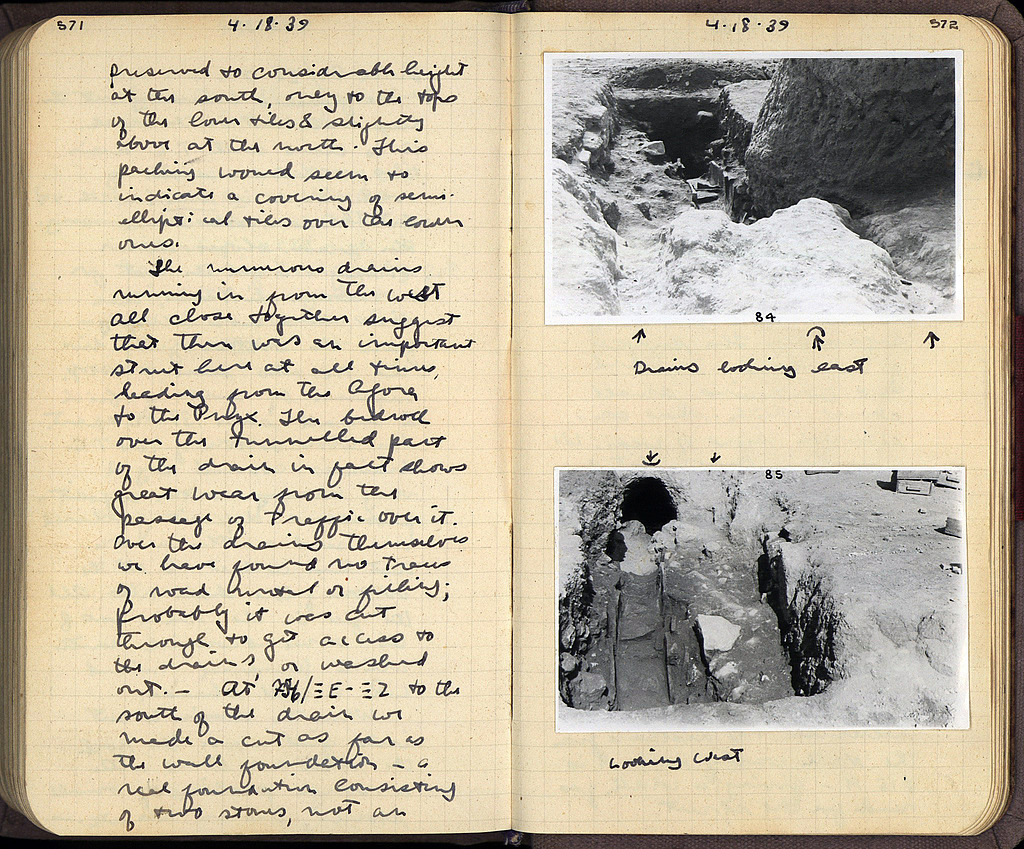 571
4.18.39
preserved to considerable height
at the south, only to the tops
of the lower tiles & slightly
above at the north. This
packing would seem to
indicate a covering of semi-
elliptical tiles over the lower
ones.
The numerous drains
running in from the west
all close together suggest
that there was an important
street here at all times,
leading from the Agora
to the Pnyx. The bedrock
over the tunnelled part
of the drain in fact shows
great wear from the
passage of traffic over it.
Over the drains themselves
we have found no traces
of road metal or filling;
probably it was cut
through to get access to
the drains or washed
out. — At /ΞΕ-ΞΖ to the
south of the drain we
made a cut as far as
the wall foundation — a
real foundation consisting
of two stones, not an
4.18.39
572
84
Drains looking east
85
Looking West